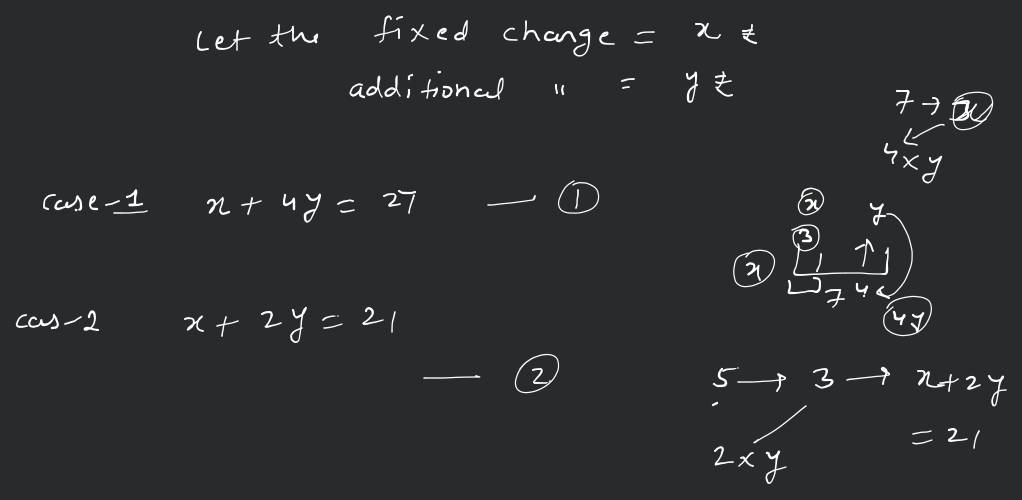 Let the fixed change = x ₹
additional " = y ₹
7 → x
4xy
case-1 x + 4y = 27 — ①
x y
3
x
7 4
4y
cas-2 x + 2y = 21
— ②
5 → 3 → x+2y
= 21
2xy